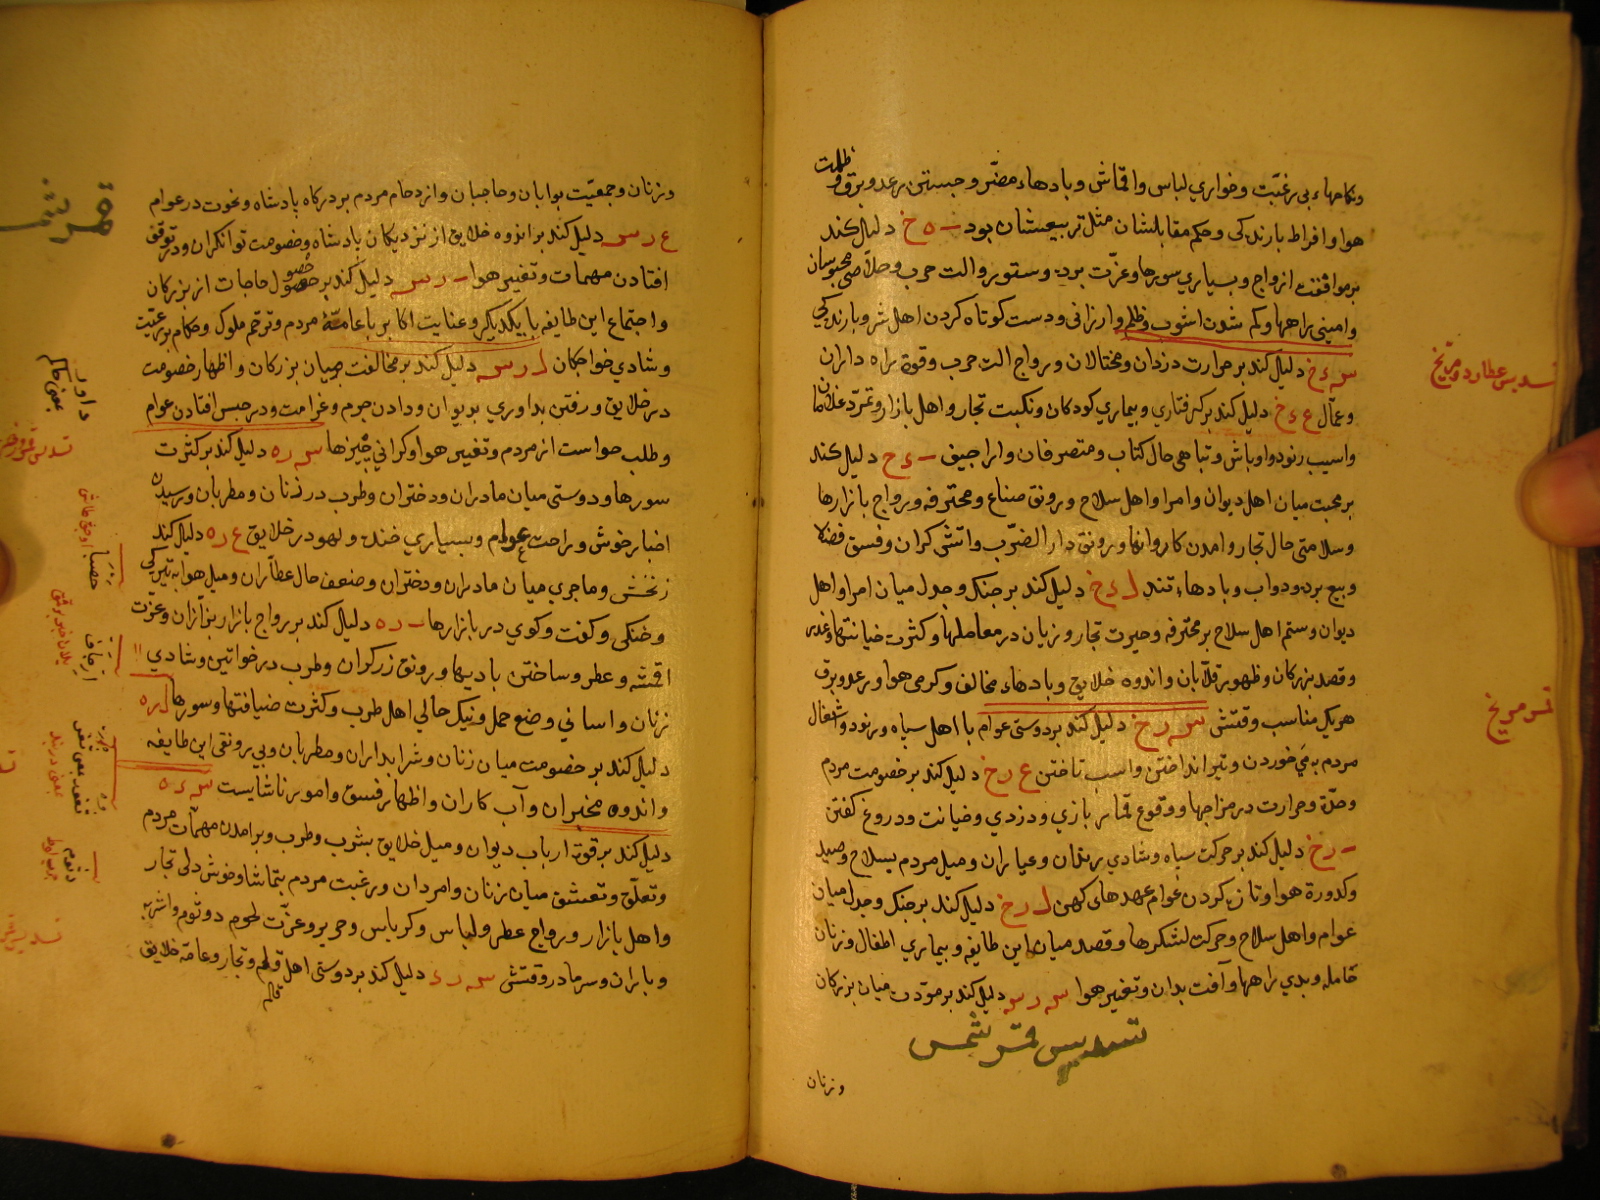 ونکاحهاء بی رغبت وخواری لباس واقماش وبادهاء مضر وجستن رعد وبرق وظلمت
هوا وافراط بارندکی وحکم مقابلشان مثل تربیعشان بود ـ ه خ دلیل کند
برموافقت ازواج وبسیاری سورها وعزت برده وستور والت حرب وخلاصی محبوسان
وامینی راهها وکم شدن اشوب وظلم وارزانی ودست کوتاه کردن اهل شر وبارندکی
س ء خ دلیل کند بر حرارت دزدان ومحتالان ورواج الت حرب وقوة راه داران
وعمال ع ء خ دلیل کند برکرفتاری وبیماری کودکان ونکبت تجار واهل بازار وتمرد غلامان
واسیب رنود واوباش وتباهی حال کتاب ومتصرفان واراجیف ـ ء خ دلیل کند
بر محبت میان اهل دیوان وامرا واهل سلاح ورونق صناع ومحترفه ورواج بازارها
وسلامتی حال تجار وامدن کاروانها ورونق دار الضرب واتش کران وفسق فضلا
وبیع برده ودواب وبادهاء تند ل ء خ دلیل کند بر جنک وجدل میان امرا واهل
دیوان وستم اهل سلاح بر محترفه وحیرت تجار وزیان در معاملها وکثرت خیانتها وغدر
وقصد بزرکان وظهور قلابان واندوه خلایق وبادهاء مخالف وکرمی هوا ورعد وبرق
هریک مناسب وقتش س ر خ دلیل کند بر دوستی عوام با اهل سپاه ورنود واشغال
مردم به می خوردن وتیر انداختن واسب تاختن ع ر خ دلیل کند بر خصومت مردم
وحدة وحرارت در مزاجها ووقوع قمار بازی ودزدی وخیانت ودروغ کفتن
ـ ر خ دلیل کند بر حرکت سپاه وشادی رندان وعیاران ومیل مردم بسلاح وصید
وکدورة هوا وتازه کردن عوام عهدهای کهن ل ر خ دلیل کند بر جنک وجدل میان
عوام واهل سلاح وحرکت لشکرها وقصد میان این طایفه وبیماری اطفال وزنان
حامله وبدی راهها وآفت بدان وتغیر هوا س ر س دلیل کند بر مودت میان بزرکان
تسدیس قمر شمس
وزنان
تسدیس عطارد ومریخ
قمر مریخ
وزنان وجمعیت بوابان وحاجبان وازدحام مردم بر درکاه پادشاه ونخوت در عوام
ع ر س دلیل کند بر اندوه خلایق از نزدیکان پادشاه وخصومت توانکران ودر توقف
افتادن مهمات وتغیر هوا ـ ر س دلیل کند بر حصول حاجات از بزرکان
واجتماع این طایفه با یکدیکر وعنایت اکابر با عامة مردم وترحم ملوک وحکام بر رعیت
وشادی خواجکان ل ر س دلیل کند بر مخالفت میان بزرکان واظهار خصومت
در خلایق ورفتن بداوری بدیوان ودادن جرم وغرامت ودر حبس افتادن عوام
وطلب خواست از مردم وتغیر هوا وکرانی چیزها س ر ه دلیل کند بر کثرت
سورها ودوستی میان مادران ودختران وطرب در زنان ومطربان ورسیدن
اخبار خوش وراحت عوام وبسیاری خنده ولهو در خلایق ع ر ه دلیل کند
رنجش وماجری میان مادران ودختران وضعف حال عطاران ومیل هوا به تیرکی
وخنکی وکفت وکوی در بازارها ـ ر ه دلیل کند بر رواج بازار بزازان وعزت
اقمشه وعطر وساختن بادیها ورونق زرکران وطرب در خواتین وشادی
زنان واسانی وضع حمل ونیک حالی اهل طرب وکثرت ضیافتها وسورها ل ر ه
دلیل کند بر خصومت میان زنان وشرابداران ومطربان وبی رونقی این طایفه
واندوه مخبران وآب کاران واظهار فسق وامور ناشایست س ء ه
دلیل کند بر قوة ارباب دیوان ومیل خلایق بشرب وطرب وبر امدن مهمات مردم
وتعلق وتعشق میان زنان وامردان ورغبت مردم بتماشا وخوش دلی تجار
واهل بازار ورواج عطر ولباس وکرباس وحریر وعزت طعوم دوثوم واشربه
وباران وسرما در وقتش س ر ء دلیل کند بر دوستی اهل قلم وتجار وعامه خلایق
قمر شمس
داور
یعنی حاکم